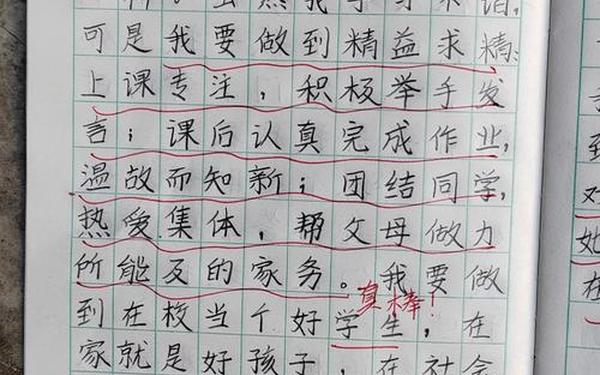 可是我要做到精益求精:
上课专注，积极举手发
言；课后认真完成作业,
温故而知新；团结同学,
热爱集体，帮父母做力
所能及的家务。我要做
真棒!
到在校当个好学生，在
家就是好孩子，在社会